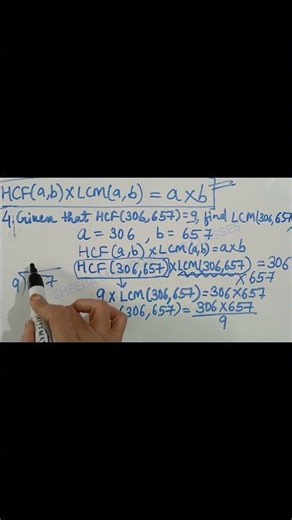 HCF(a,b)×LCM(a,b) = a×b
4. Given that HCF(306,657)=9, find LCM(306,657)
a = 306, b = 657
HCF(a,b)×LCM(a,b)=a×b
HCF(306,657)×LCM(306,657) = 306
×657
9 × LCM(306,657)=306×657
(306,657)= 306×657
9
9) 7